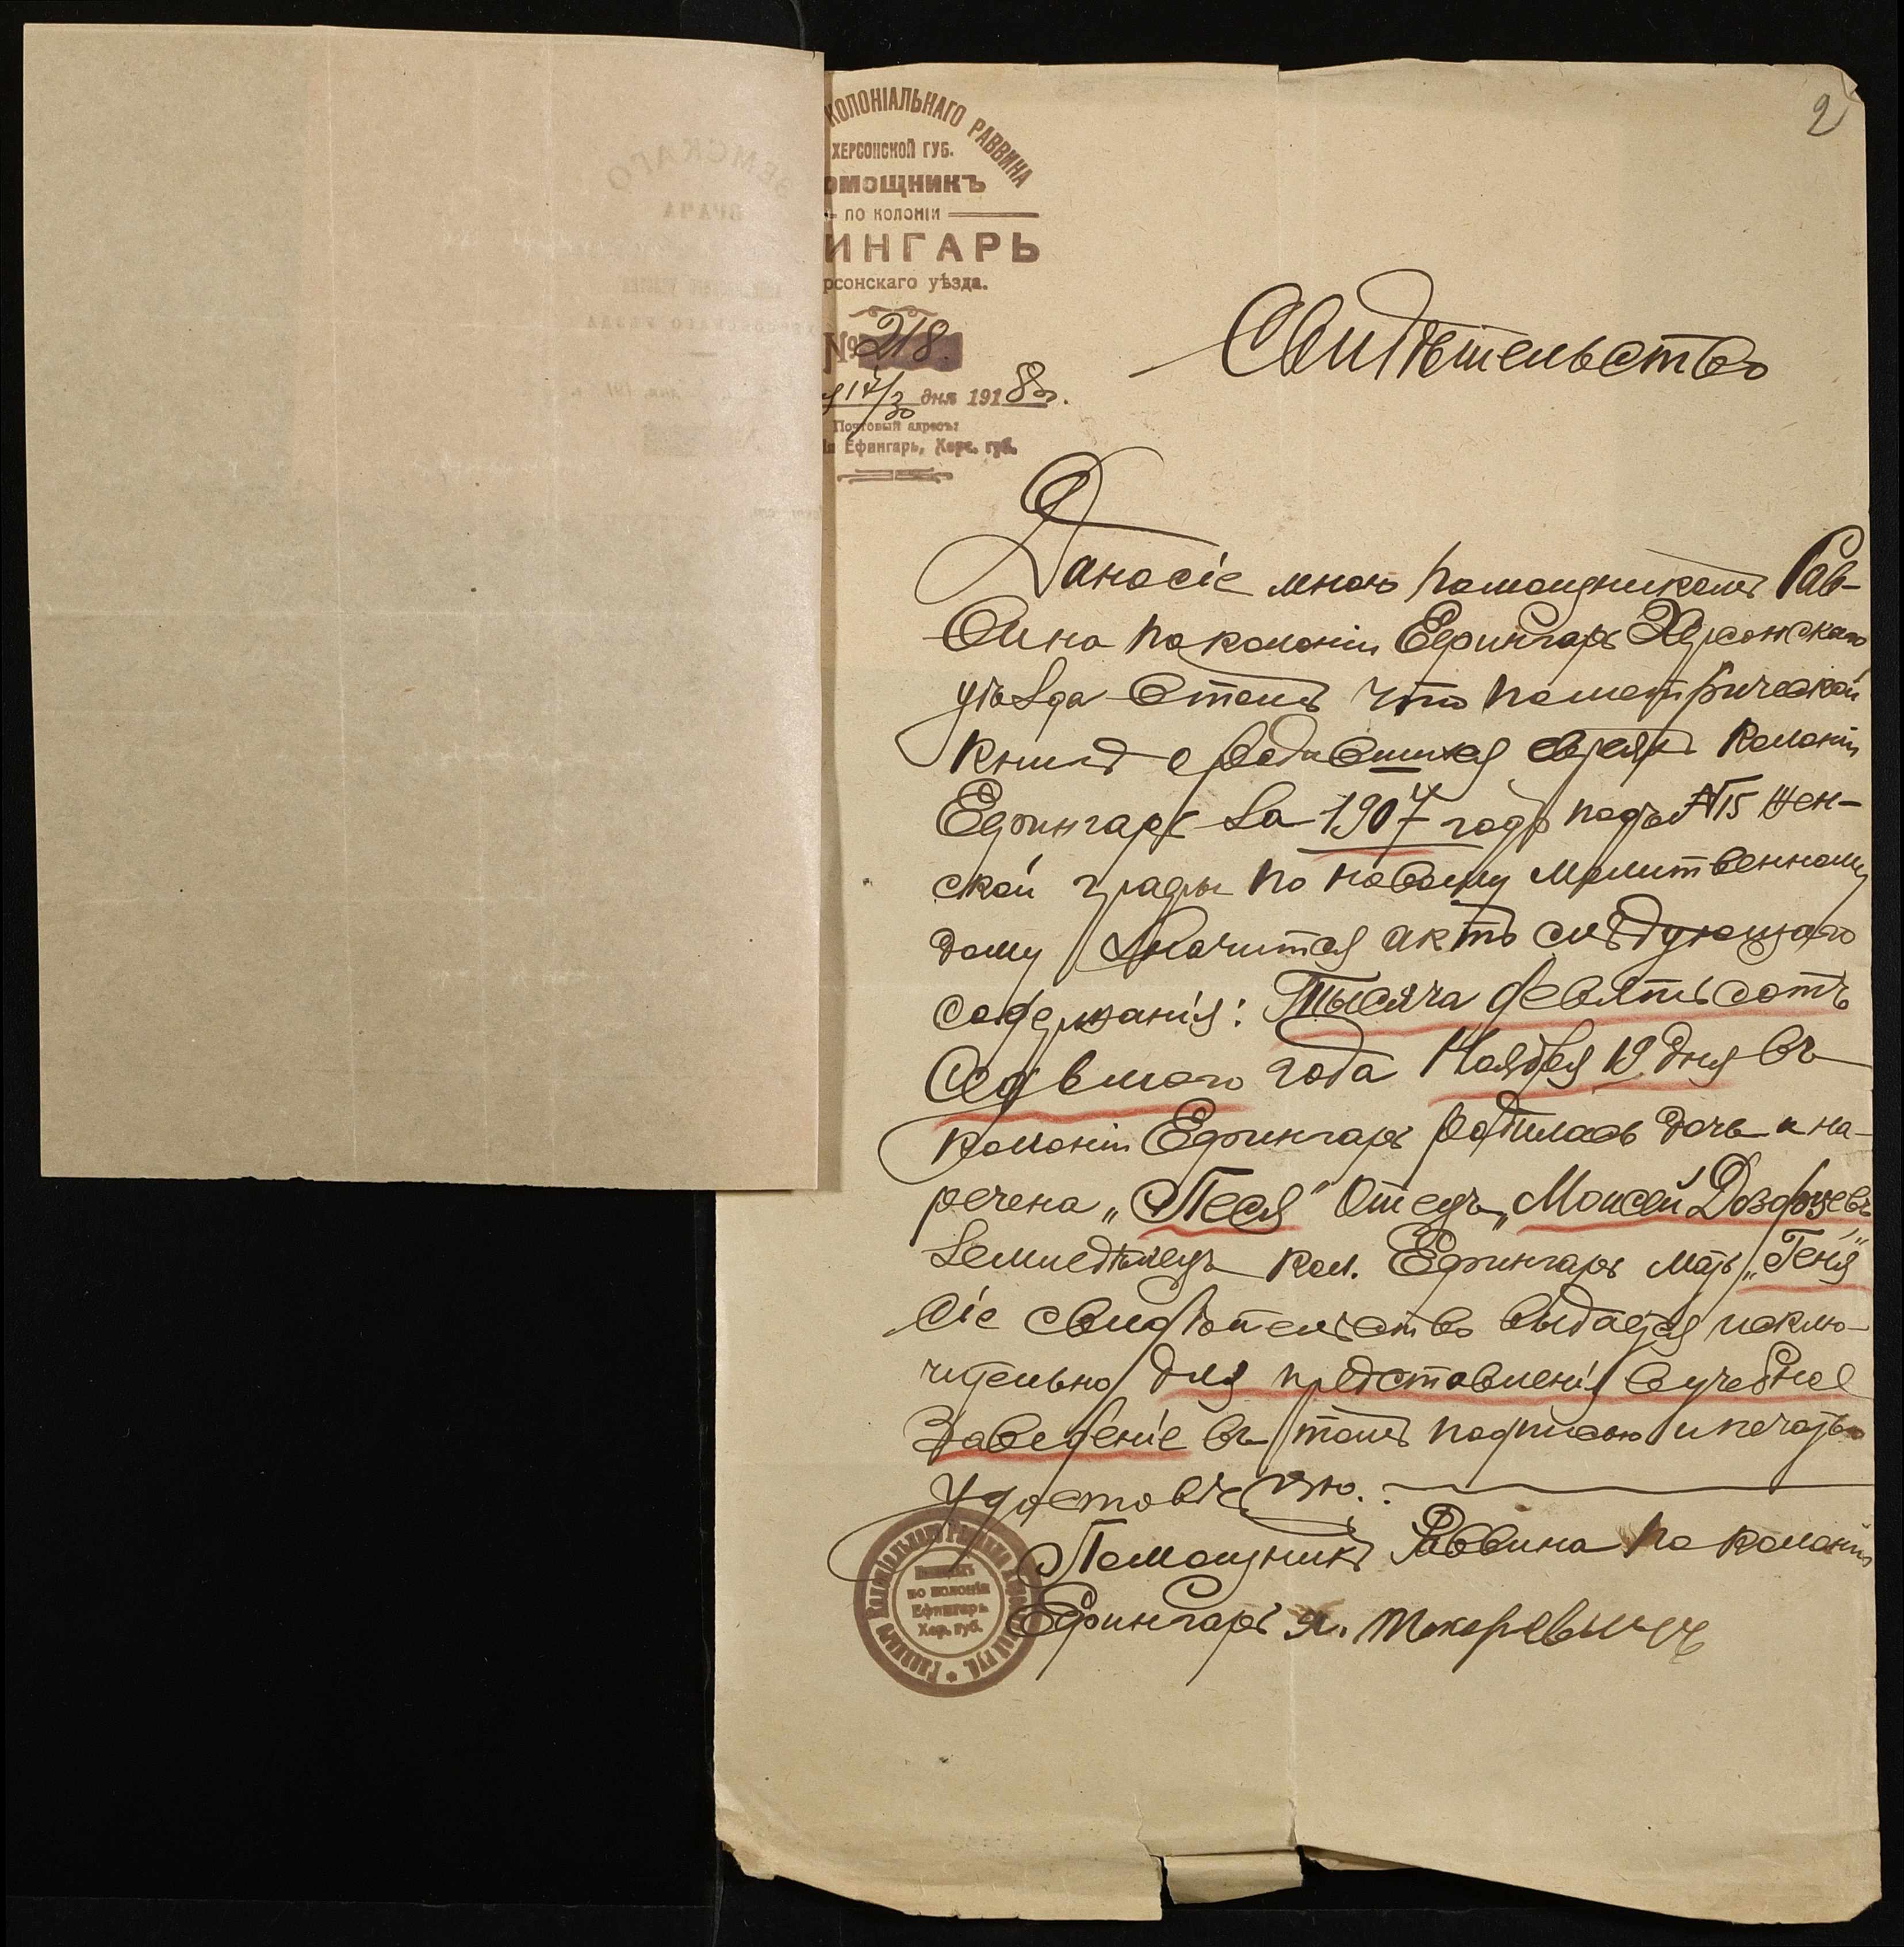 2
КОЛОНІАЛЬНАГО РАВВИНА
ХЕРСОНСКОЙ ГУБ.
ОМОЩНИКЪ
ПО КОЛОНІИ
ИНГАРЬ
рсонскаго уѣзда.
№ 218.
17/30 дня 1918 г.
Почтовый адресъ:
Ефингарь, Херс. губ.
Свидѣтельство
Дано сіе мною помощникомъ Рав-
вина по колоніи Ефингаръ Херсонскаго
уѣзда въ томъ что по метрической
книгѣ о родившихся евреяхъ колоніи
Ефингаръ за 1907 годъ подъ №15 жен-
ской графы по новому молитвенному
дому значится актъ слѣдующаго
содержанія: Тысяча девятьсотъ
седьмого года Ноября 19 дня въ
колоніи Ефингаръ родилась дочь и на-
речена „Песя" Отецъ „Моисей Дозорцевъ
земледѣлецъ кол. Ефингаръ мать „Геня"
Сіе свидѣтельство выдается исклю-
чительно для представленія въ учебное
заведеніе въ томъ подписью и печатью
удостовѣряю.
Помощникъ Раввина по колоніи
Ефингаръ Я. Токаревичъ
по колоніи
Ефингарь
Хер. губ.